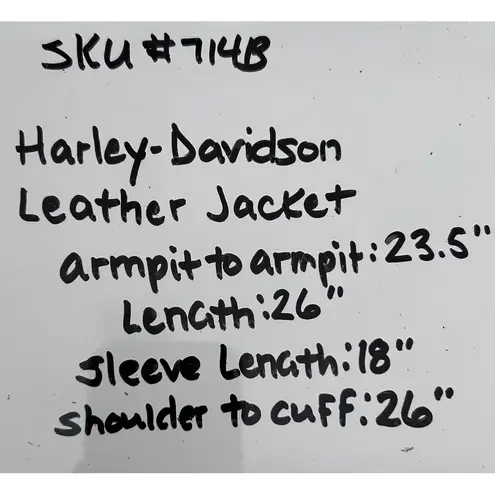 SKU #714B
Harley-Davidson
Leather Jacket
armpit to armpit: 23.5"
Length: 26"
sleeve Length: 18"
shoulder to cuff: 26"